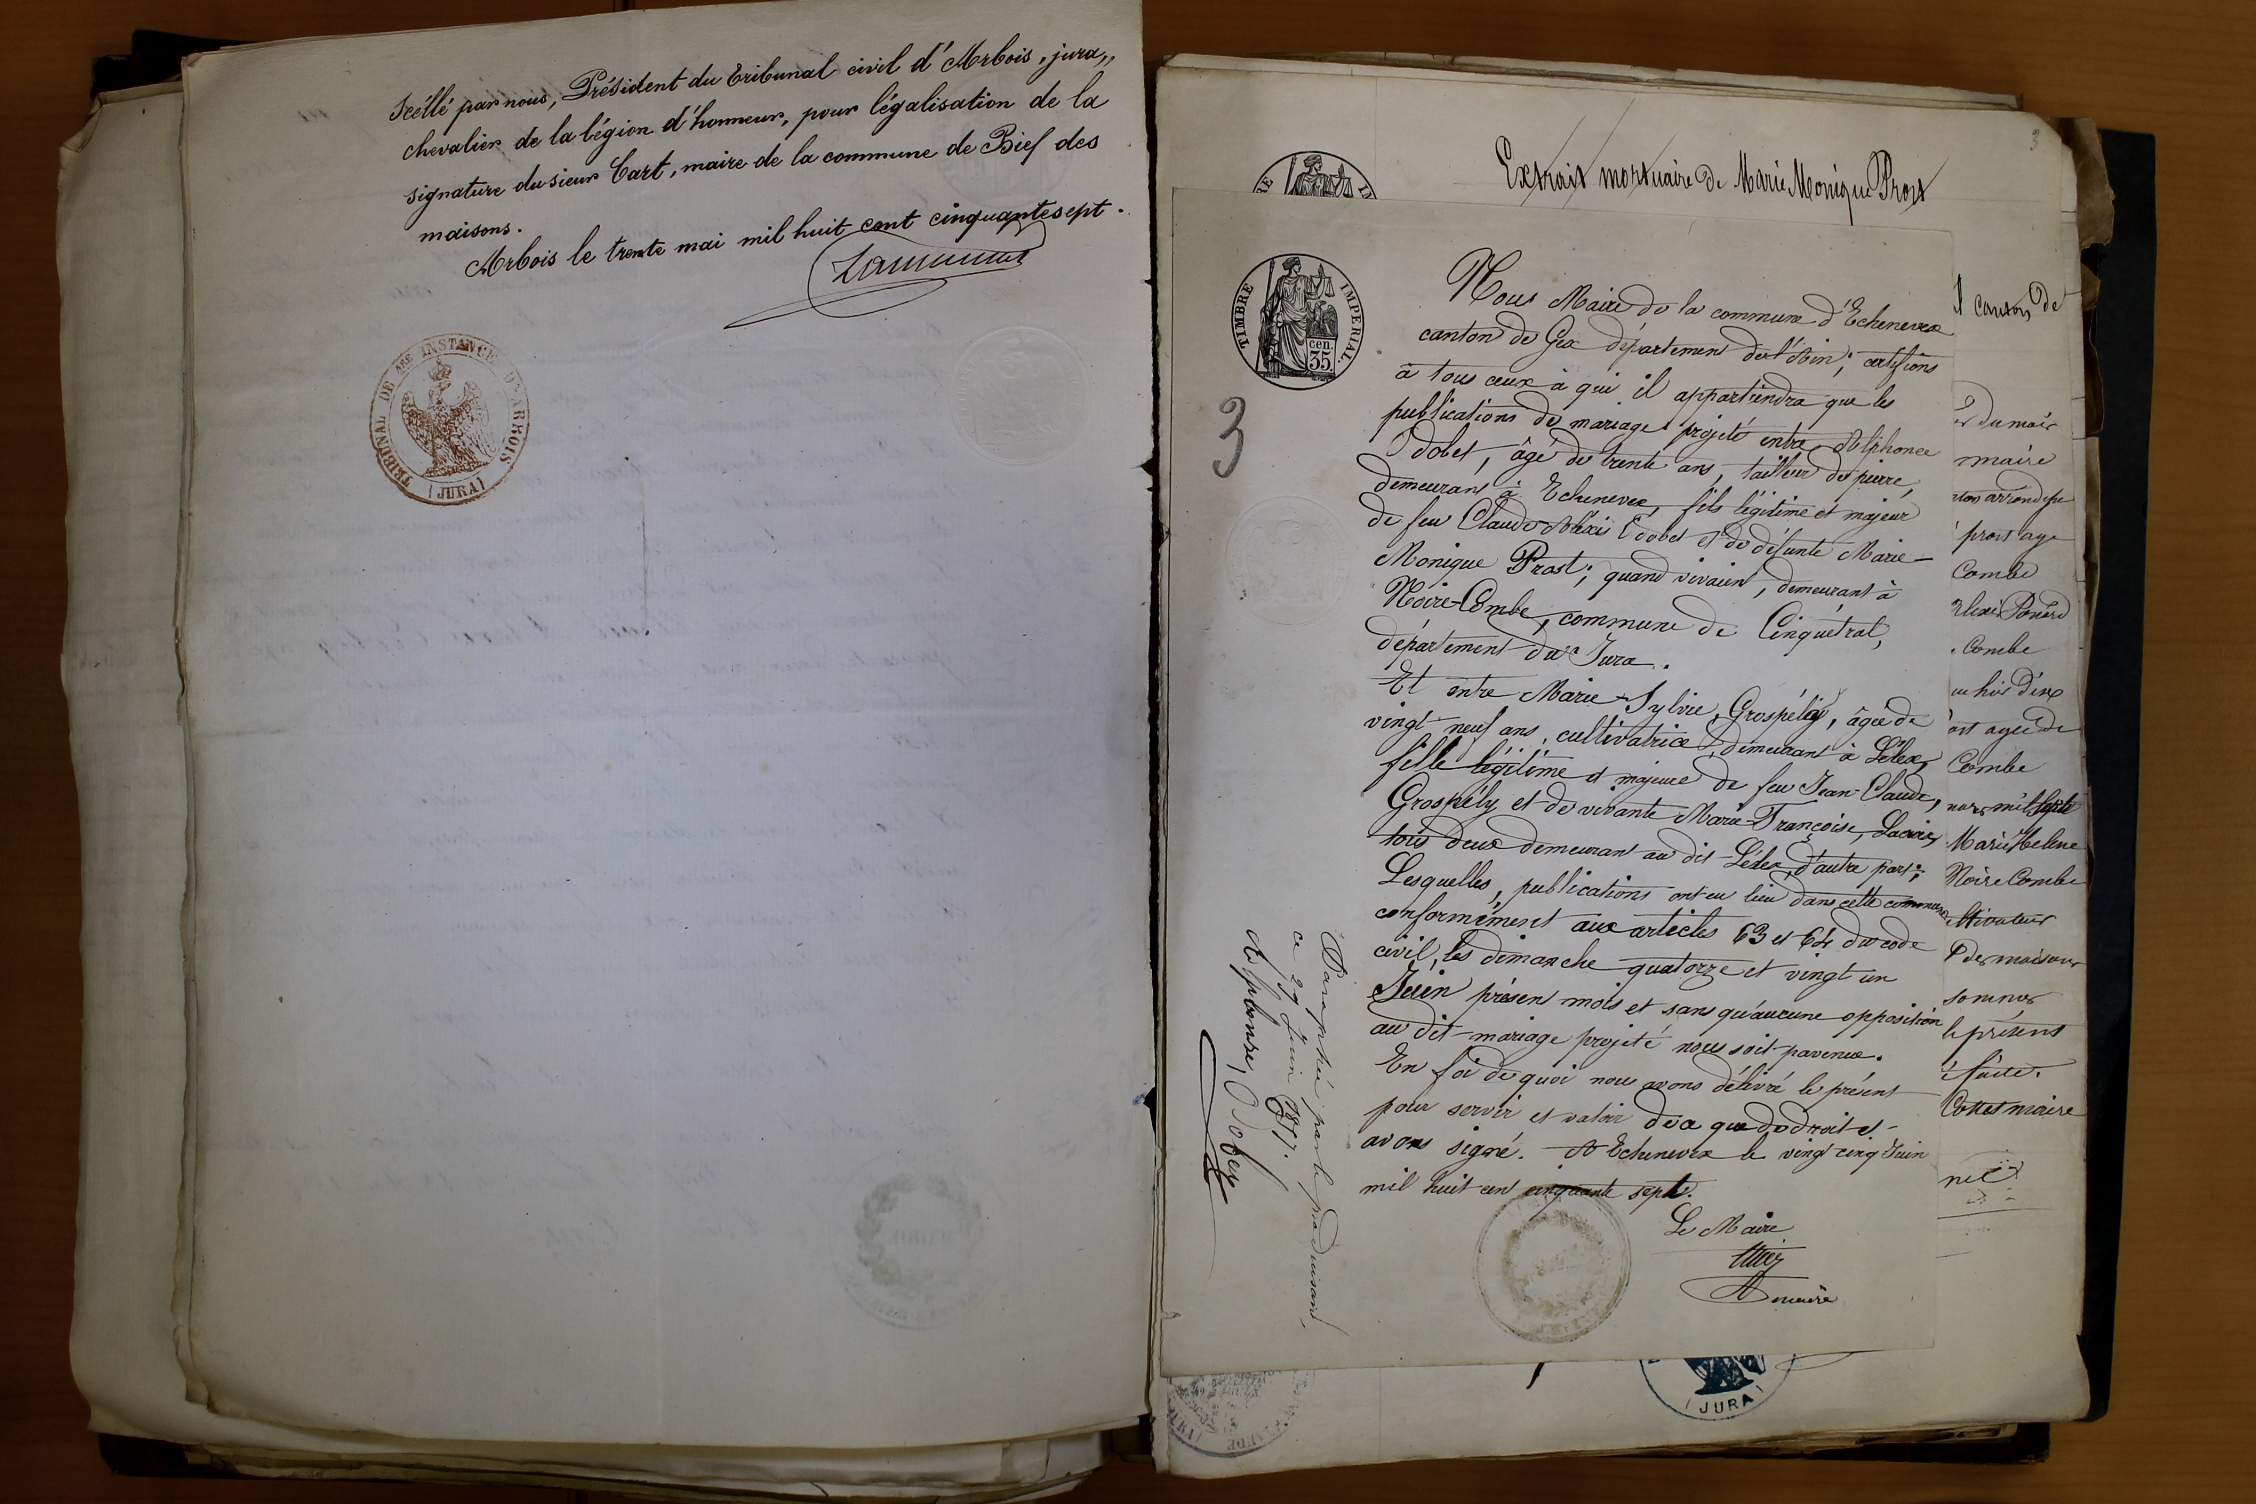 Scéllé par nous, Président du tribunal civil d'Arbois, jura,,
chevalier de la légion d'honneur, pour légalisation de la
signature du sieur Cart, maire de la commune de Bief des
maisons.
Arbois le trente mai mil huit cent cinquante sept.
TRIBUNAL DE 1ERE INSTANCE D'ARBOIS
(JURA)
3
Extrait mortuaire de Marie Monique Prost
TIMBRE IMPERIAL.
cen.
35
3
Nous Maire de la commune d'Echenevex
canton de Gex département de l'Ain; certifions
à tous ceux à qui il appartiendra que les
publications de mariage projeté entre Alphonce
Odobet, âgé de trente ans, tailleur de pierre,
demeurant à Echenevex, fils légitime et majeur
de feu Claude Aléxis Odobet et de défunte Marie-
Monique Prost; quand vivaient, demeurant à
Noire-Combe, commune de Cinquétral,
département du Jura.
Et entre Marie-Sylvie, Grospély, âgée de
vingt-neuf ans, cultivatrice, demeurant à Lélex,
fille légitime et majeure de feu Jean-Claude,
Grospély et de vivante Marie-Françoise, Lacroix,
tous deux demeurant au dit Lélex, d'autre part;
Lesquelles, publications ont eu lieu dans cette commune
conformément aux articles 63 et 64 du code
civil, les dimanche quatorze et vingt un
Juin présent mois et sans qu'aucune opposition
au dit mariage projeté nous soit parvenue.
En foi de quoi nous avons délivré le présent
pour servir et valoir de ce que de droit et
avons signé. A Echenevex le vingt cinq Juin
mil huit cent cinquante sept.
Le Maire
Paraphé par le produisant,
ce 27 Juin 1857.
Alphonse, Odobez
canton de
du mois
maire
prost age
Combe
Combe
agée de
Combe
Marie Helene
Noire Combe
cultivateur
des maisons
sommes
le présent
faite.
maire
(JURA)